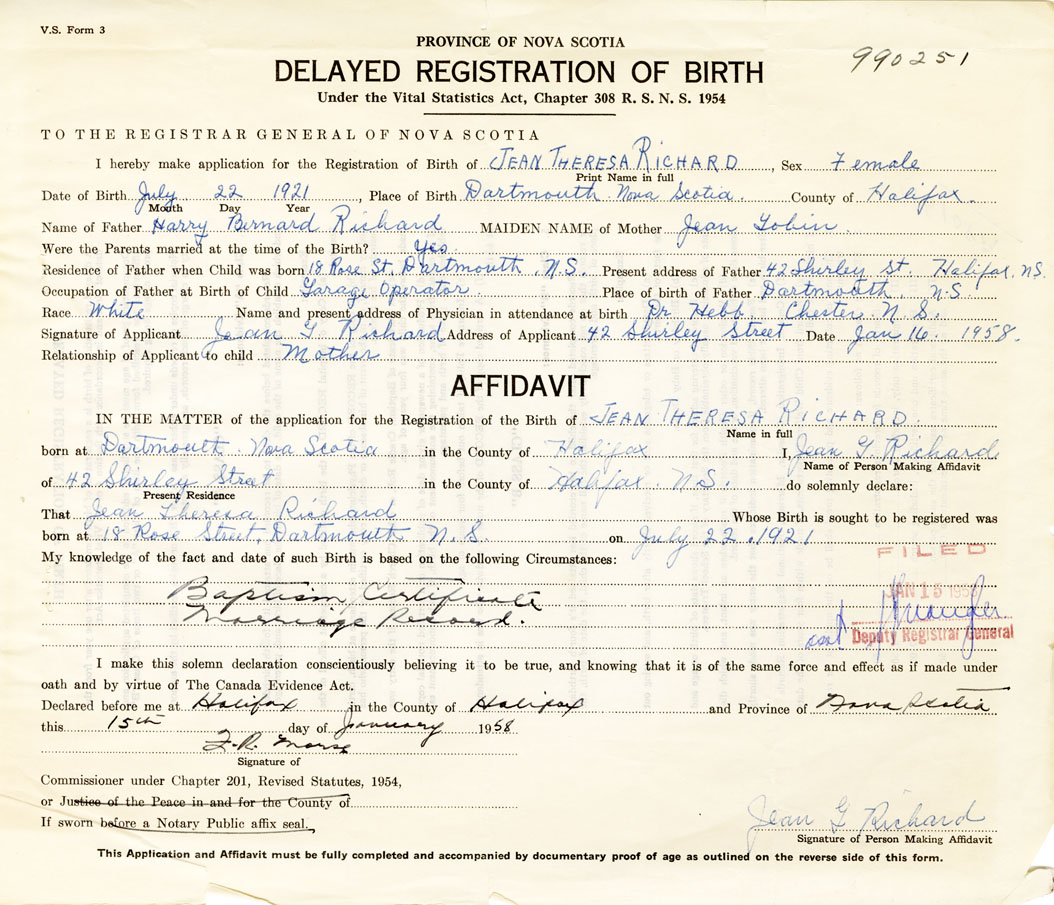 V.S. Form 3
PROVINCE OF NOVA SCOTIA
990251
DELAYED REGISTRATION OF BIRTH
Under the Vital Statistics Act, Chapter 308 R. S. N. S. 1954
TO THE REGISTRAR GENERAL OF NOVA SCOTIA
I hereby make application for the Registration of Birth of JEAN THERESA RICHARD, Sex Female
Print Name in full
Date of Birth July 22 1921, Place of Birth Dartmouth Nova Scotia County of Halifax.
Month Day Year
Name of Father Harry Bernard Richard MAIDEN NAME of Mother Jean Tobin
Were the Parents married at the time of the Birth? Yes
Residence of Father when Child was born 18 Rose St. Dartmouth, N.S. Present address of Father 42 Shirley St. Halifax, NS.
Occupation of Father at Birth of Child Garage Operator Place of birth of Father Dartmouth, N.S.
Race White Name and present address of Physician in attendance at birth Dr Hebb Chester N.S.
Signature of Applicant Jean G Richard Address of Applicant 42 Shirley Street Date Jan 16 1958.
Relationship of Applicant to child Mother
AFFIDAVIT
IN THE MATTER of the application for the Registration of the Birth of JEAN THERESA RICHARD.
Name in full
born at Dartmouth Nova Scotia in the County of Halifax I, Jean G. Richard
Name of Person Making Affidavit
of 42 Shirley Street in the County of Halifax N.S. do solemnly declare:
Present Residence
That Jean Theresa Richard Whose Birth is sought to be registered was
born at 18 Rose Street, Dartmouth N.S. on July 22, 1921
My knowledge of the fact and date of such Birth is based on the following Circumstances:
FILED
Baptism Certificate
JAN 15 1958
Marriage Record.
asst Deputy Registrar General
I make this solemn declaration conscientiously believing it to be true, and knowing that it is of the same force and effect as if made under
oath and by virtue of The Canada Evidence Act.
Declared before me at Halifax in the County of Halifax and Province of Nova Scotia
this 15th day of January 1958
F.R. Morse
Signature of
Commissioner under Chapter 201, Revised Statutes, 1954,
or Justice of the Peace in and for the County of
If sworn before a Notary Public affix seal.
Jean G Richard
Signature of Person Making Affidavit
This Application and Affidavit must be fully completed and accompanied by documentary proof of age as outlined on the reverse side of this form.